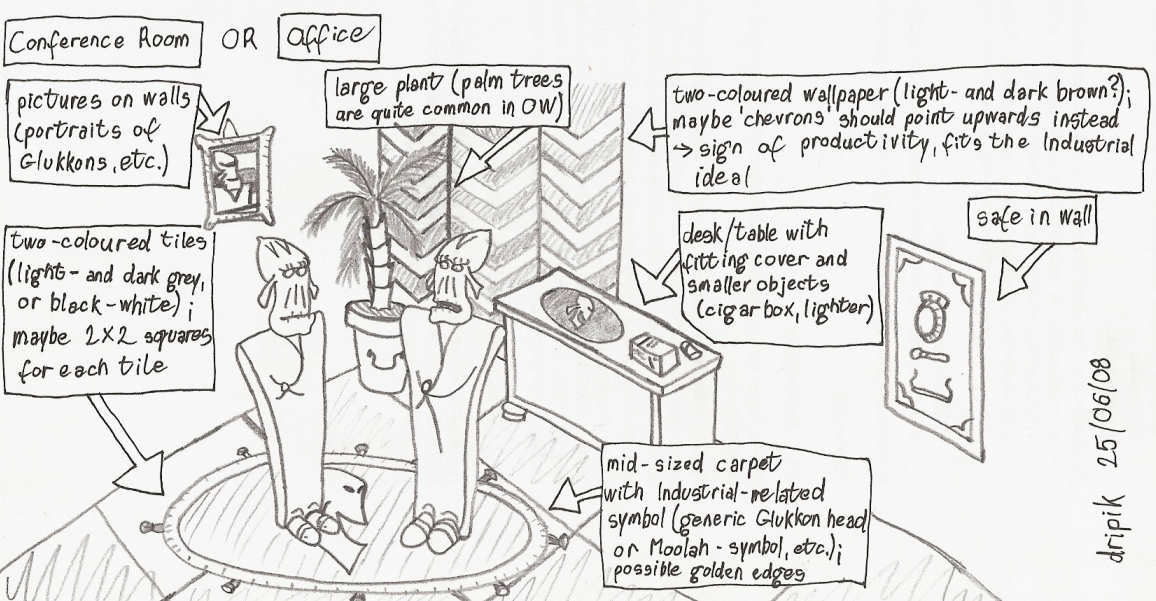 Conference Room OR Office
pictures on walls
(portraits of
Glukkons, etc.)
large plant (palm trees
are quite common in OW)
two-coloured wallpaper (light- and dark brown?);
maybe 'chevrons' should point upwards instead
→ sign of productivity, fits the Industrial
ideal
safe in wall
desk/table with
fitting cover and
smaller objects
(cigar box, lighter)
two-coloured tiles
(light- and dark grey,
or black-white);
maybe 2x2 squares
for each tile
mid-sized carpet
with Industrial-related
symbol (generic Glukkon head
or Moolah-symbol, etc.);
possible golden edges
dripik 25/06/08